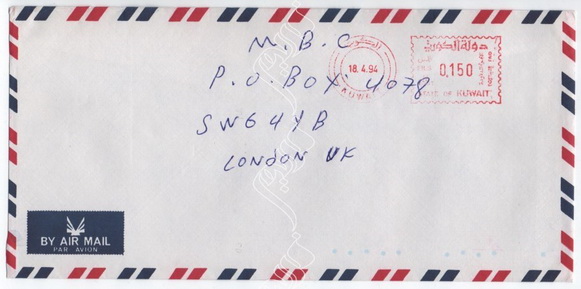 M.B.C
P.O.BOX 4078
SW64YB
LONDON UK
الكويت
18.4.94
KUWAIT
دولة الكويت
0,150
STATE OF KUWAIT
BY AIR MAIL
PAR AVION